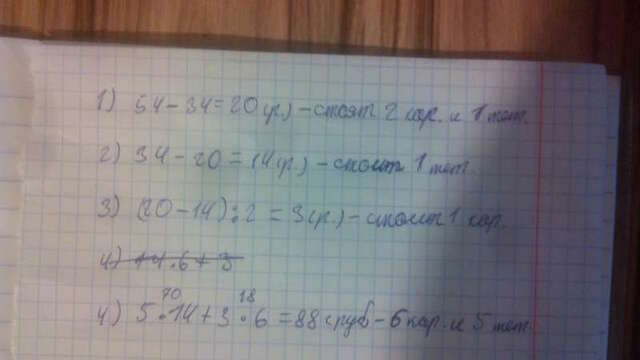 1) 54-34=20(р.) - стоят 2 кар. и 1 тет.
2) 34-20=14(р.) - стоит 1 тет.
3) (20-14):2=3(р.) - стоит 1 кар.
4) 14.6+3
70 18
4) 5.14+3.6=88(руб - 6 кар. и 5 тет.